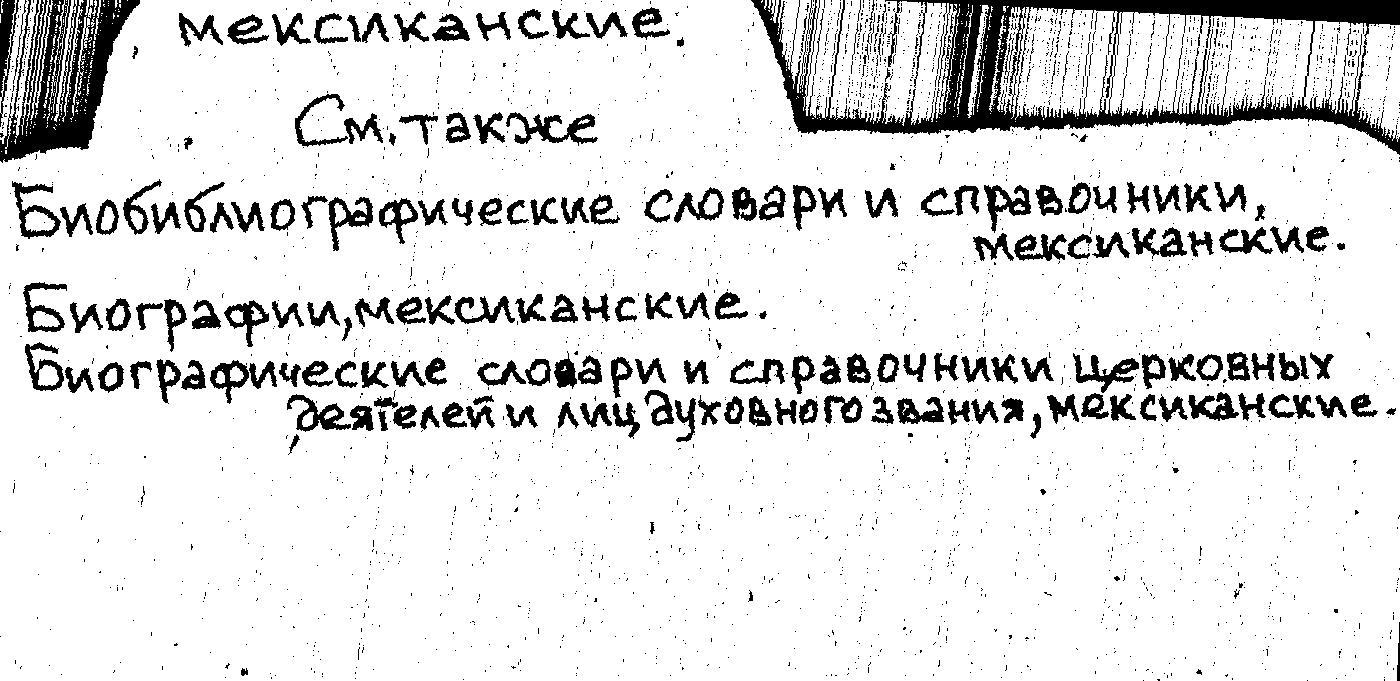 мексиканские.
См. также
Биобиблиографические словари и справочники,
мексиканские.
Биографии, мексиканские.
Биографические словари и справочники церковных
деятелей и лиц духовного звания, мексиканские.